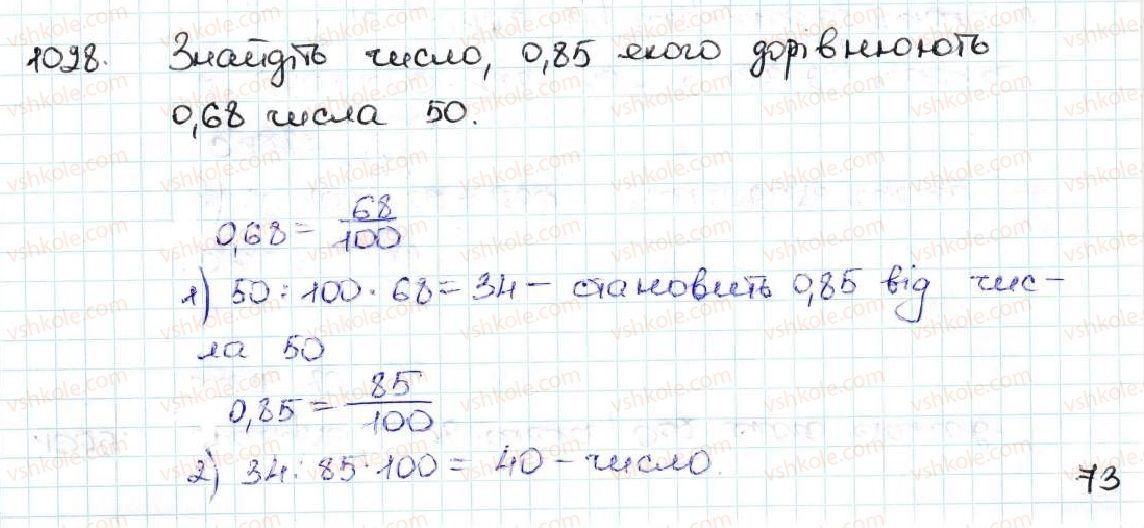 1098. Знайдіть число, 0,85 якого дорівнюють
0,68 числа 50.
0,68 = 68/100
1) 50 : 100 · 68 = 34 – становить 0,85 від чис-
ла 50
0,85 = 85/100
2) 34 : 85 · 100 = 40 – число.
73